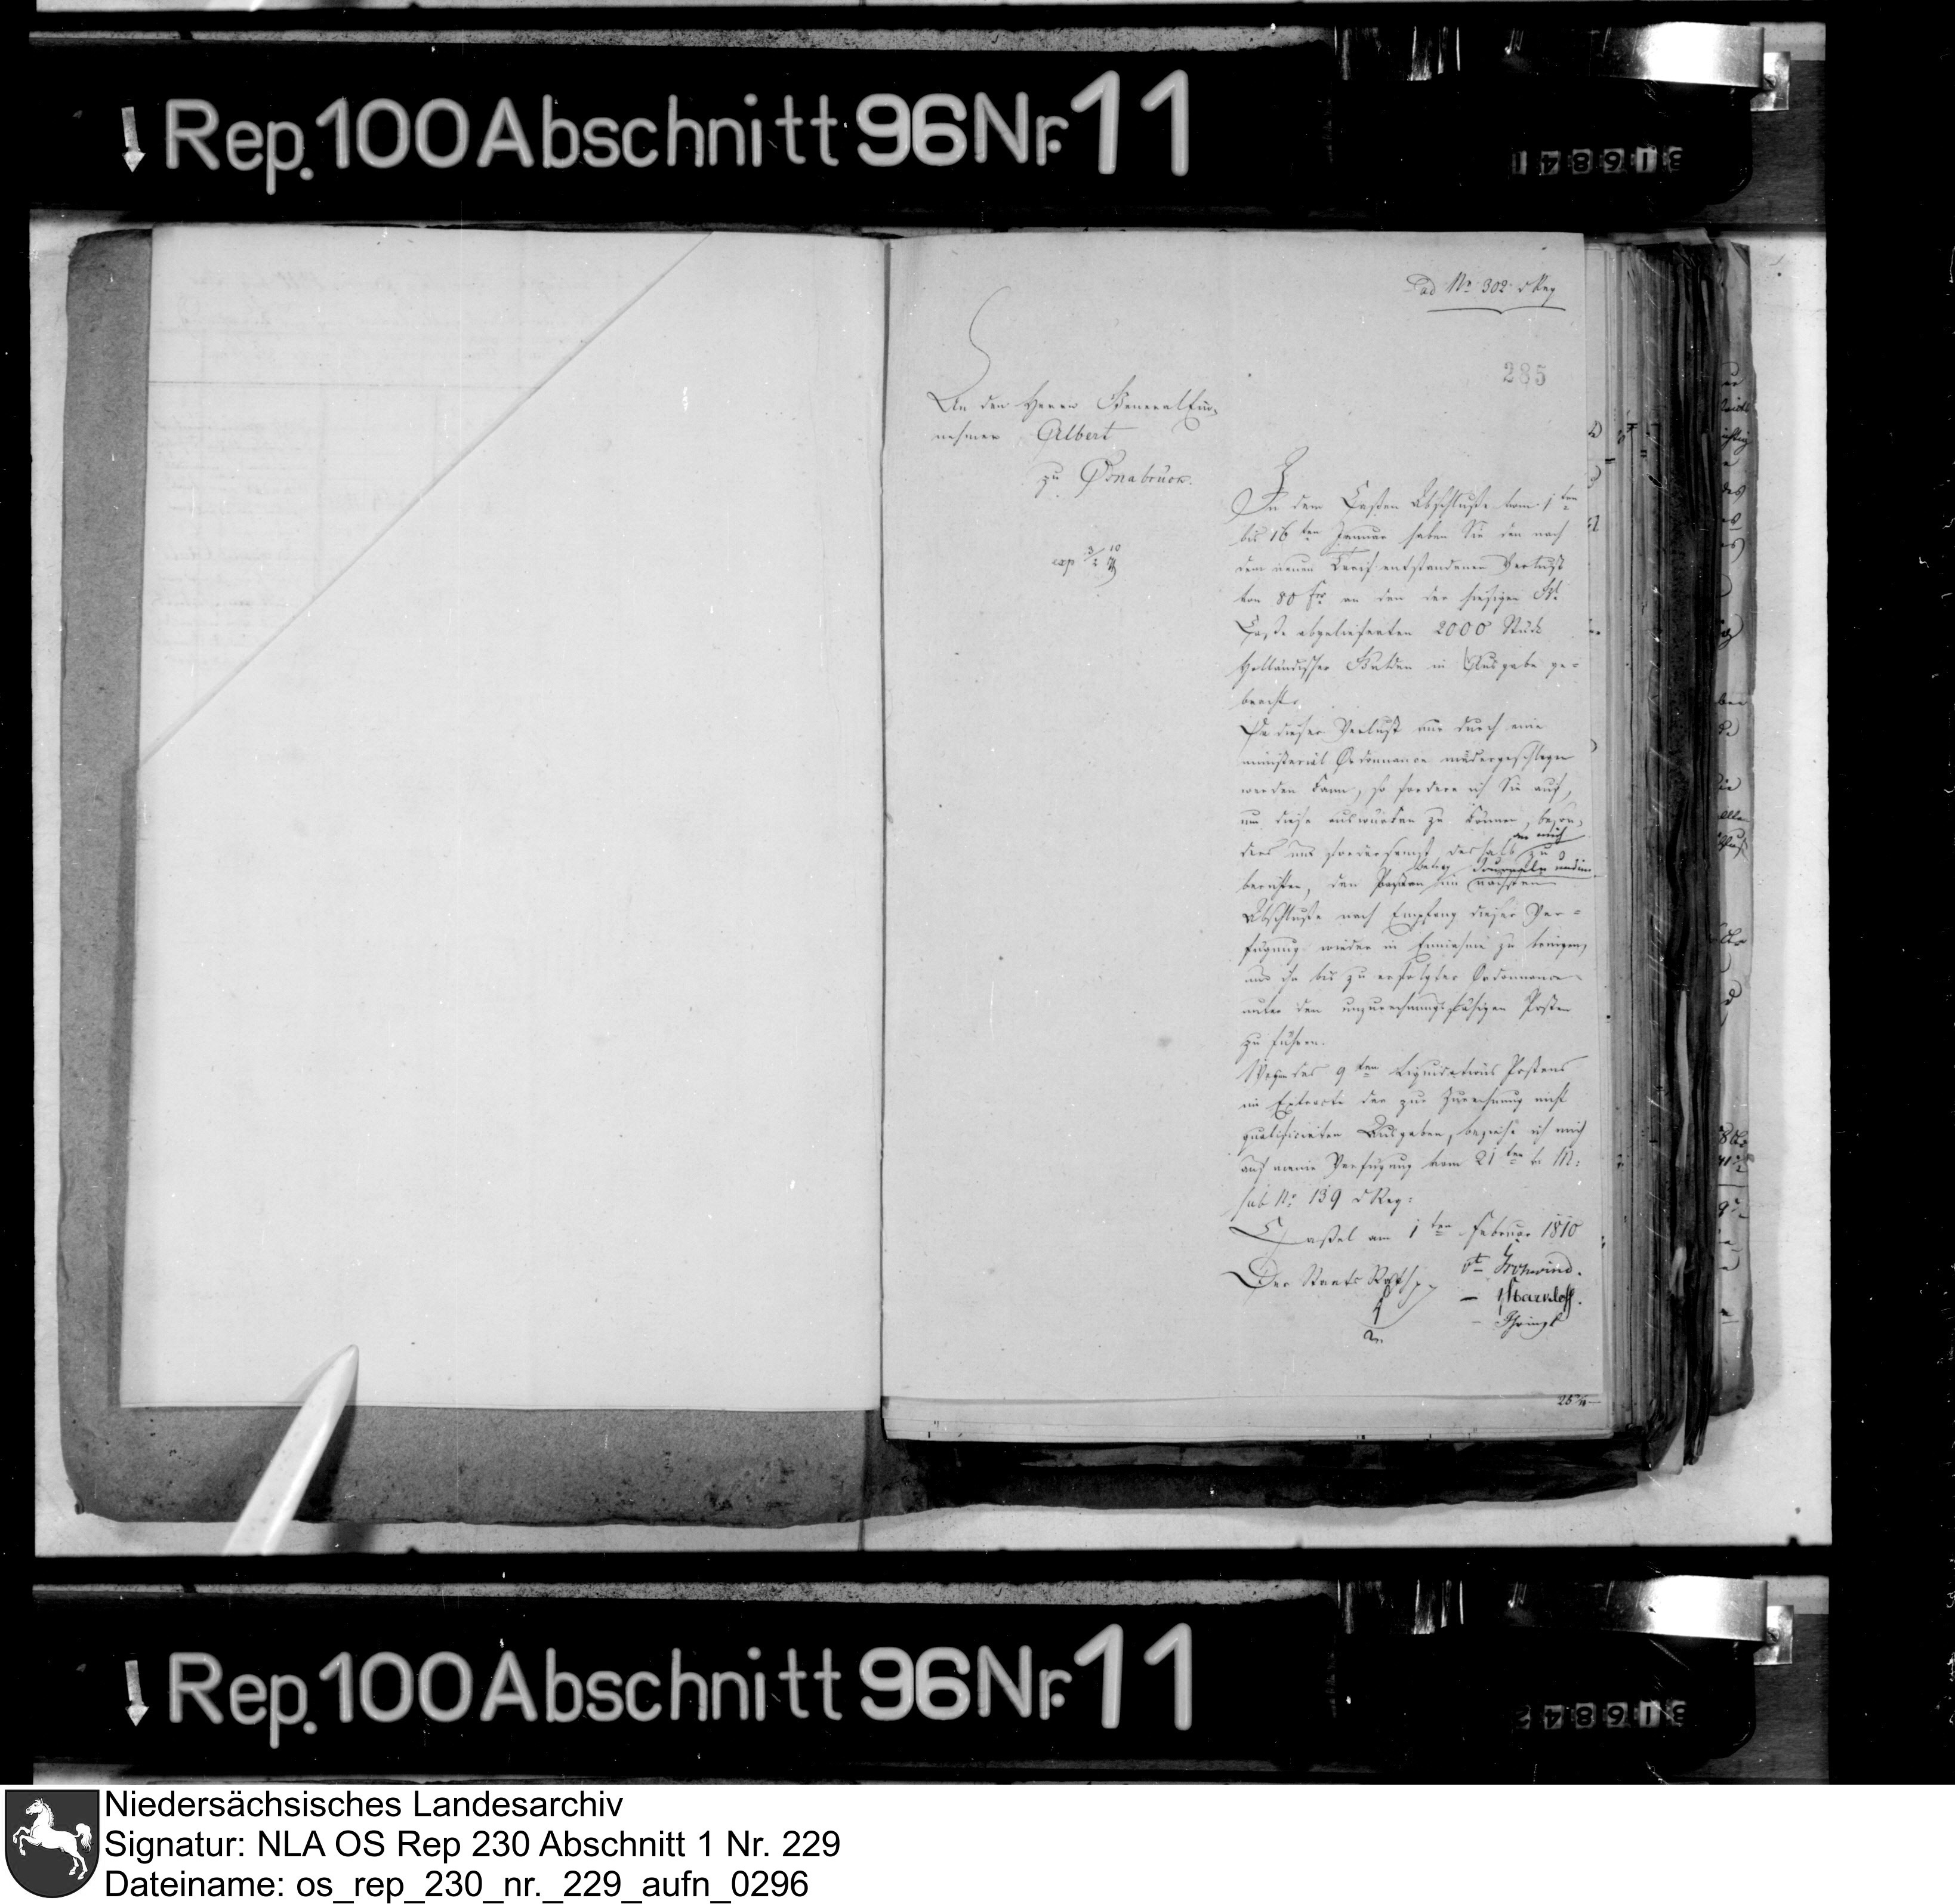 Rep. 100 Abschnitt 96 Nr. 11
ad No 302 d Reg
285
An den Herrn General Ein-
nehmer Albert
zu Osnabrück.
exp 3/2 10
In dem Cassen Abschlusse vom 1ten
bis 16ten Januar haben Sie den nach
dem neuen Tarif entstandenen Verlust
von 80 frc an den der hiesigen
Casse abgelieferten 2000 Stück
Holländischer Gulden in Ausgabe ge-
bracht.
Da dieser Verlust nur durch eine
ministerial Ordonnance niedergeschlagen
werden kann, so fordere ich Sie auf,
um diese auswürken zu können, beson-
ders und fordersamst deshalb zu
an mich
berichten, den im nächsten
Abschlusse nach Empfang dieser Ver-
fügung wieder in Einnahme zu bringen,
und ihn bis zu erfolgter Ordonnance
unter den unzurechnungsfähigen Posten
zu führen.
Wegen des 9ten Liquidations Postens
im Extracte der zur Zurechnung nicht
qualificirten Ausgaben, beziehe ich mich
auf meine Verfügung vom 21ten v. M:
sub No 139 d Reg:
Cassel am 1ten Februar 1810
Der Staats Rath
Rep. 100 Abschnitt 96 Nr. 11
Niedersächsisches Landesarchiv
Signatur: NLA OS Rep 230 Abschnitt 1 Nr. 229
Dateiname: os_rep_230_nr._229_aufn_0296